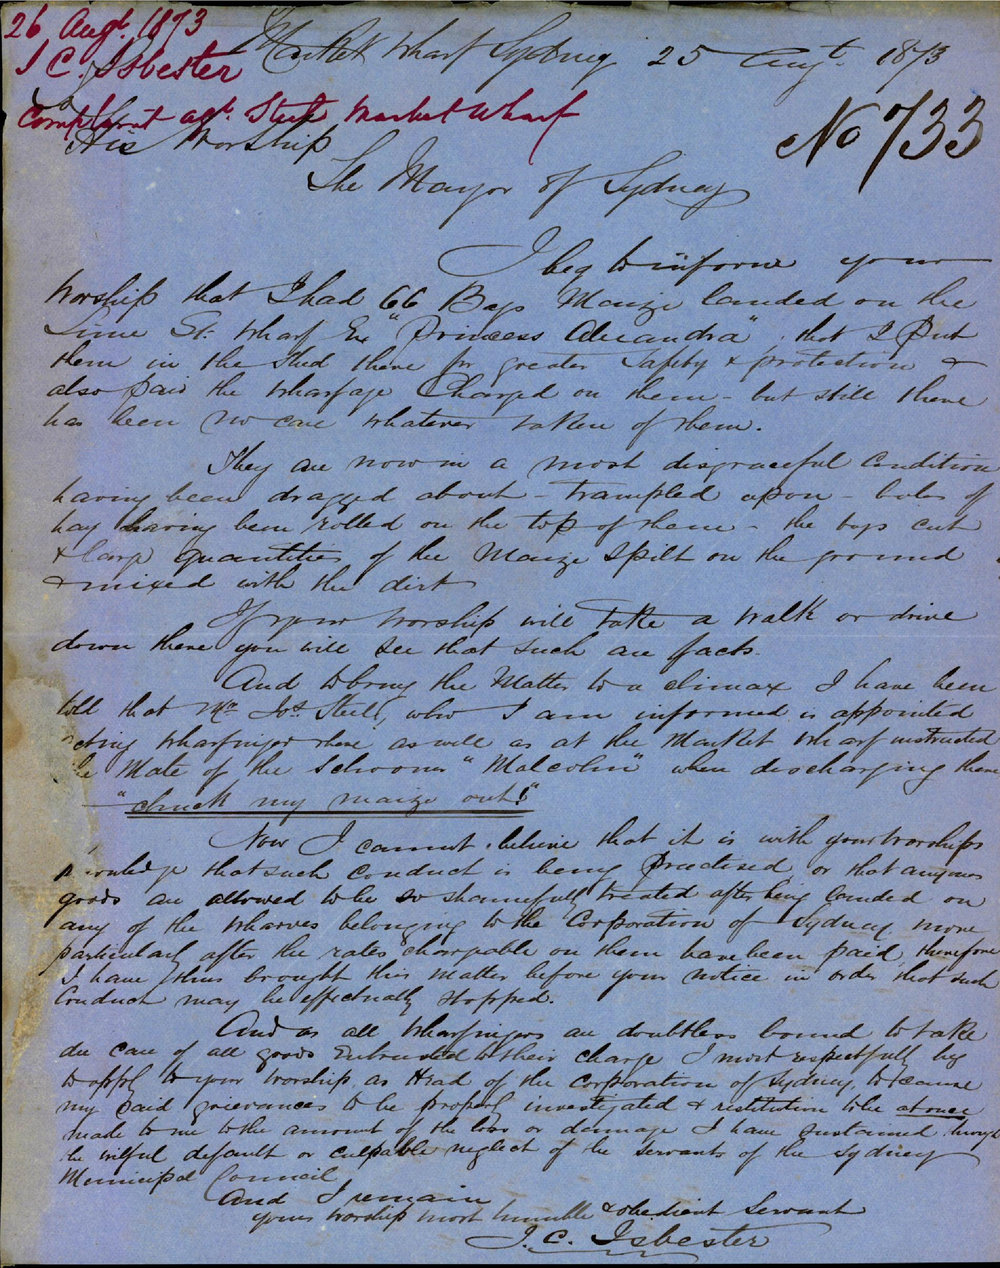 26 Augt. 1873
J C. Isbester
Complaint agt. Steel Market Wharf
Market Wharf Sydney 25 Augt. 1873
No 733
To
His Worship
The Mayor of Sydney
I beg to inform your
Worship that I had 66 Bags Maize landed on the
Lime St. Wharf Ex "Princess Alexandra", that I put
them in the Shed there for greater Safety & protection &
also paid the Wharfage Charged on them - but still there
has been no care whatever taken of them.
They are now in a most disgraceful Condition
having been dragged about - trampled upon - bales of
hay having been rolled on the top of them - the bags cut
& large quantities of the Maize Spilt on the ground
& mixed with the dirt
If your Worship will take a walk or drive
down there you will see that such are facts.
And to bring the Matter to a climax I have been
told that Mr. Jos. Steel, who I am informed is appointed
acting Wharfinger there as well as at the Market Wharf instructed
the Mate of the Schooner "Malcolm" when discharging there
"chuck my maize out!"
Now I cannot believe that it is with your Worships
knowledge that such conduct is being Practised, or that any ones
goods are allowed to be so shamefully treated after being landed on
any of the Wharves belonging to the Corporation of Sydney, more
particularly after the rates chargeable on them have been paid, therefore
I have thus brought this matter before your notice in order that such
Conduct may be effectually stopped.
And as all Wharfingers are doubtless bound to take
due care of all goods Entrusted to their charge I most respectfully beg
to apply to your Worship, as Head of the Corporation of Sydney, to cause
my said grievances to be properly investigated & restitution to be at once
made to me to the amount of the loss or damage I have sustained through
the wilful default or culpable neglect of the servants of the Sydney
Municipal Council
And I remain
Your Worships most humble & obedient Servant
J. C. Isbester